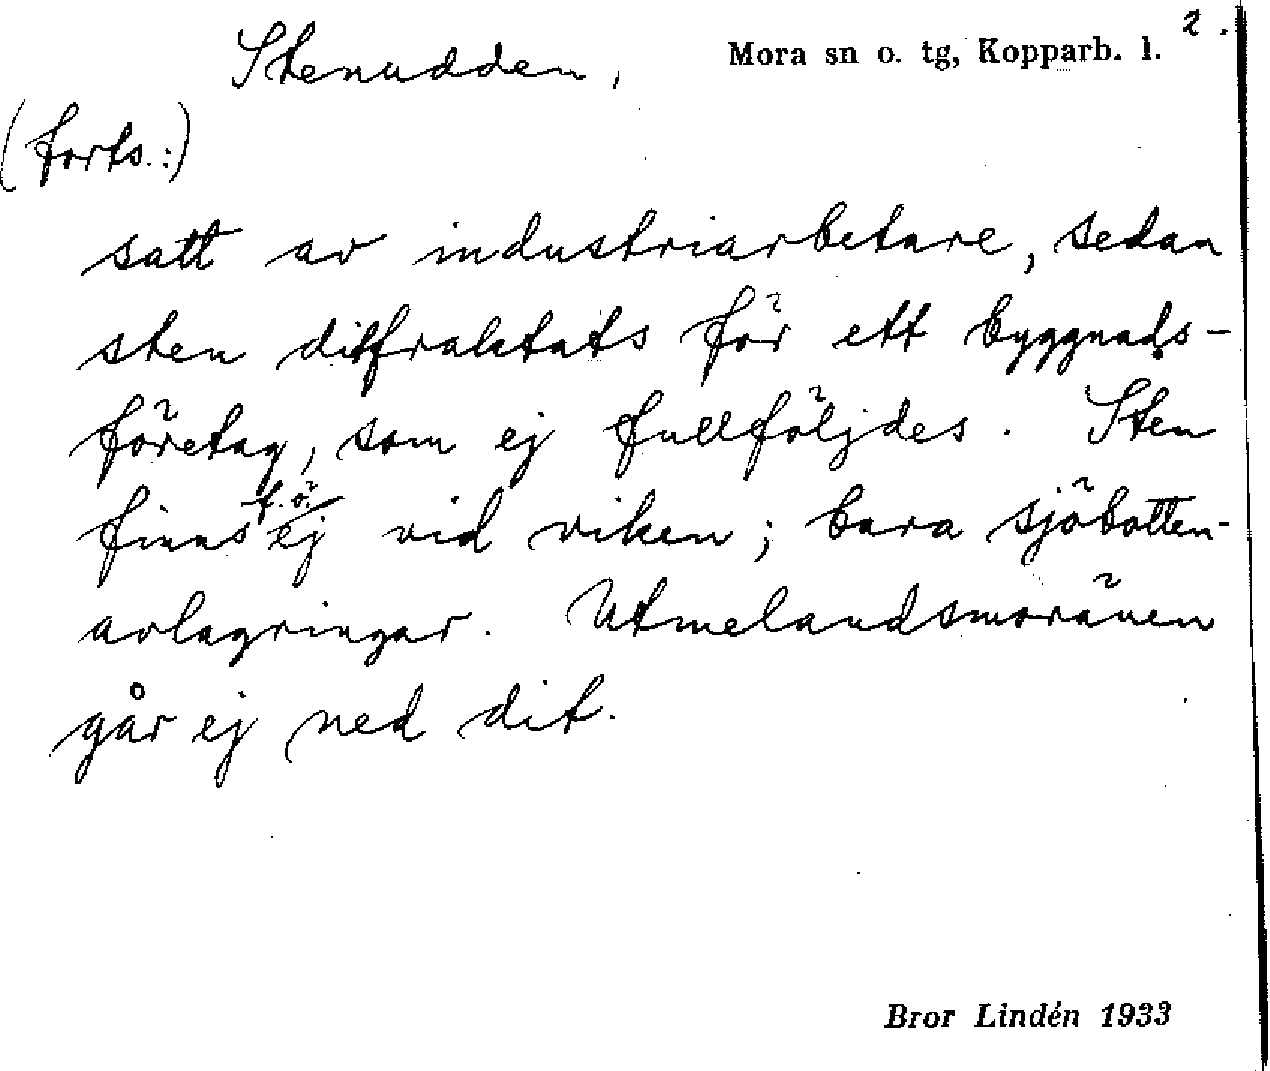 2.
Stenudden, Mora sn o. tg, Kopparb. l.
(forts.:)
satt av industriarbetare, sedan
sten ditfraktats för ett byggnads-
företag, som ej fullföljdes. Sten
finns f.ö. ej vid viken; bara sjöbotten-
avlagringar. Utmelandsmoränen
går ej ned dit.
Bror Lindén 1933